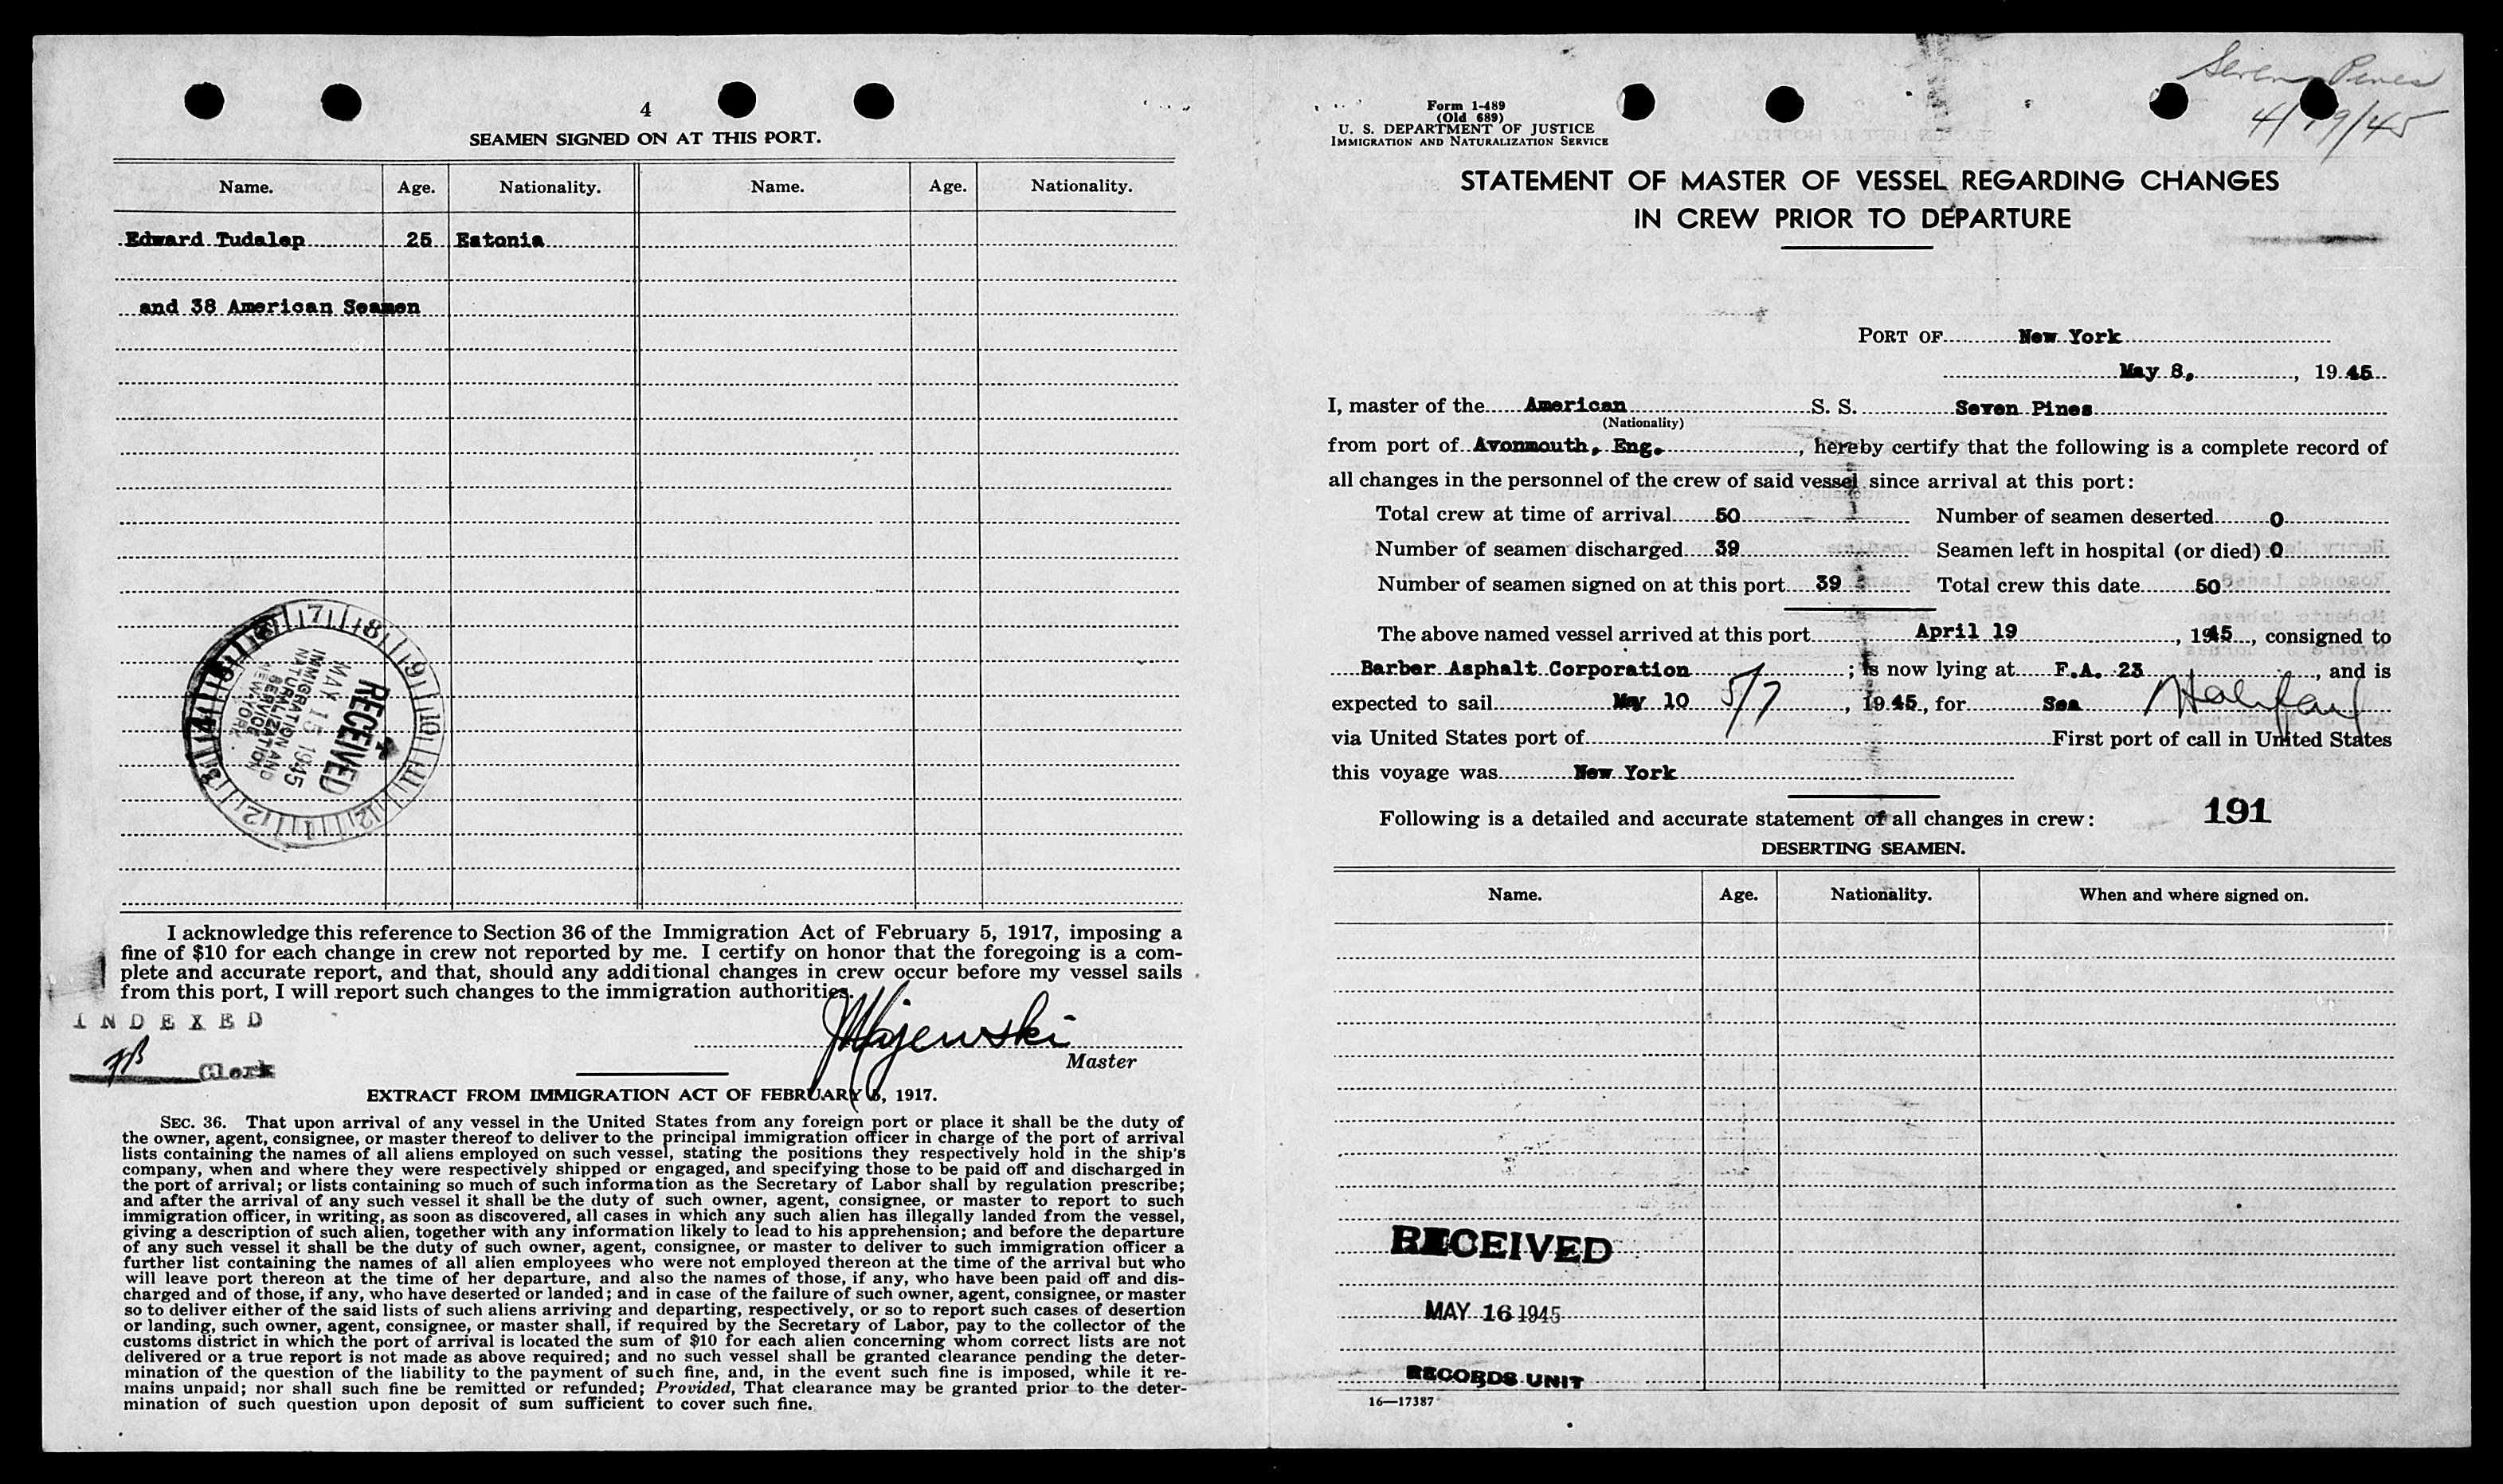 4
SEAMEN SIGNED ON AT THIS PORT.
Name. Age. Nationality. Name. Age. Nationality.
Edward Tudalep 25 Estonia
and 38 American Seamen
RECEIVED
MAY 15 1945
IMMIGRATION AND
NATURALIZATION
SERVICE
NEW YORK
I acknowledge this reference to Section 36 of the Immigration Act of February 5, 1917, imposing a
fine of $10 for each change in crew not reported by me. I certify on honor that the foregoing is a com-
plete and accurate report, and that, should any additional changes in crew occur before my vessel sails
from this port, I will report such changes to the immigration authorities.
INDEXED
Majewski
Master
Clerk
EXTRACT FROM IMMIGRATION ACT OF FEBRUARY 5, 1917.
SEC. 36. That upon arrival of any vessel in the United States from any foreign port or place it shall be the duty of
the owner, agent, consignee, or master thereof to deliver to the principal immigration officer in charge of the port of arrival
lists containing the names of all aliens employed on such vessel, stating the positions they respectively hold in the ship's
company, when and where they were respectively shipped or engaged, and specifying those to be paid off and discharged in
the port of arrival; or lists containing so much of such information as the Secretary of Labor shall by regulation prescribe;
and after the arrival of any such vessel it shall be the duty of such owner, agent, consignee, or master to report to such
immigration officer, in writing, as soon as discovered, all cases in which any such alien has illegally landed from the vessel,
giving a description of such alien, together with any information likely to lead to his apprehension; and before the departure
of any such vessel it shall be the duty of such owner, agent, consignee, or master to deliver to such immigration officer a
further list containing the names of all alien employees who were not employed thereon at the time of the arrival but who
will leave port thereon at the time of her departure, and also the names of those, if any, who have been paid off and dis-
charged and of those, if any, who have deserted or landed; and in case of the failure of such owner, agent, consignee, or master
so to deliver either of the said lists of such aliens arriving and departing, respectively, or so to report such cases of desertion
or landing, such owner, agent, consignee, or master shall, if required by the Secretary of Labor, pay to the collector of the
customs district in which the port of arrival is located the sum of $10 for each alien concerning whom correct lists are not
delivered or a true report is not made as above required; and no such vessel shall be granted clearance pending the deter-
mination of the question of the liability to the payment of such fine, and, in the event such fine is imposed, while it re-
mains unpaid; nor shall such fine be remitted or refunded; Provided, That clearance may be granted prior to the deter-
mination of such question upon deposit of sum sufficient to cover such fine.
Seven Pines
4/19/45
Form 1-489
(Old 689)
U. S. DEPARTMENT OF JUSTICE
IMMIGRATION AND NATURALIZATION SERVICE
STATEMENT OF MASTER OF VESSEL REGARDING CHANGES
IN CREW PRIOR TO DEPARTURE
PORT OF New York
May 8, , 1945
I, master of the American S. S. Seven Pines
(Nationality)
from port of Avonmouth, Eng. , hereby certify that the following is a complete record of
all changes in the personnel of the crew of said vessel since arrival at this port:
Total crew at time of arrival 50 Number of seamen deserted 0
Number of seamen discharged 39 Seamen left in hospital (or died) 0
Number of seamen signed on at this port 39 Total crew this date 50
The above named vessel arrived at this port April 19 , 1945, consigned to
Barber Asphalt Corporation ; is now lying at F.A. 23 , and is
expected to sail May 10 5/7 , 1945, for Sea Halifax
via United States port of First port of call in United States
this voyage was New York
Following is a detailed and accurate statement of all changes in crew: 191
DESERTING SEAMEN.
Name. Age. Nationality. When and where signed on.
RECEIVED
MAY 16 1945
RECORDS UNIT
16—17387